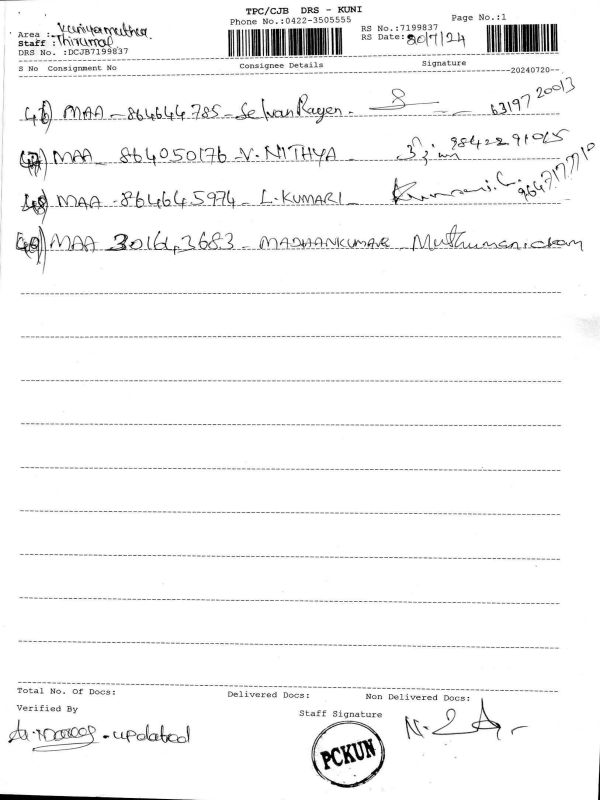 TPC/CJB DRS - KUNI
Phone No.:0422-3505555
Page No.:1
Area : Kuniyamuthur.
RS No.:7199837
Staff : Thirumal
RS Date: 20/7/24
DRS No. :DCJB7199837
S No Consignment No Consignee Details Signature
20240720
46) MAA - 864644785 - SelvanRagen - 63197 20013
47) MAA - 864050176 - V. NITHYA - 98422 91065
48) MAA - 864645974 - L. KUMARI - Kumari. L. 9647177710
49) MAA 30164,3683 - MADHANKUMAR - Muthumanickam
Total No. Of Docs: Delivered Docs: Non Delivered Docs:
Verified By Staff Signature
- updated
PCKUN